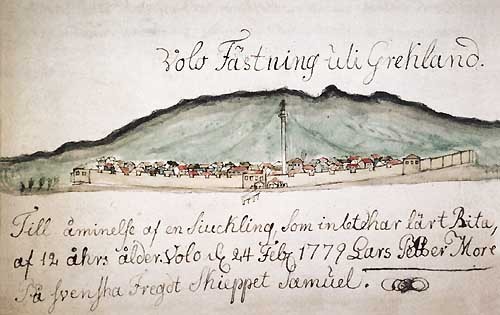 Volo Fästning uti Grekland.
Till åminelse af en Siuckling, som intet har lärt Rita,
af 12 åhrs ålder. Volo d. 24 Feb. 1779 Lars Petter More
På svenska Fregdt Skieppet Samuel.